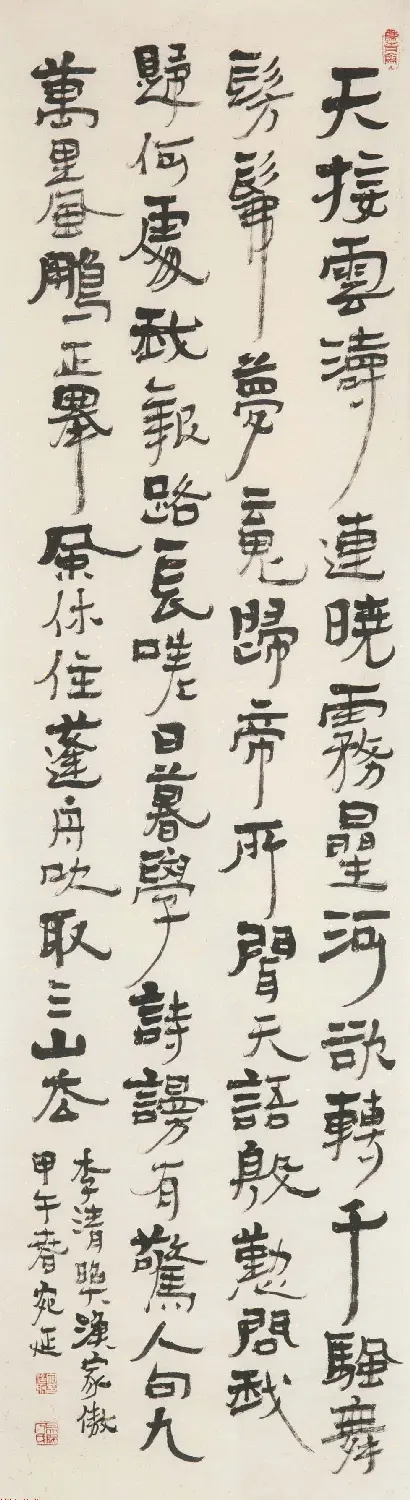 天接雲濤連曉霧星河欲轉千颿舞
髣髴夢魂歸帝所聞天語殷懃問我
歸何處我報路長嗟日暮學詩謾有驚人句九
萬里風鵬正舉風休住蓬舟吹取三山去
李清照漁家傲
甲午春宛延